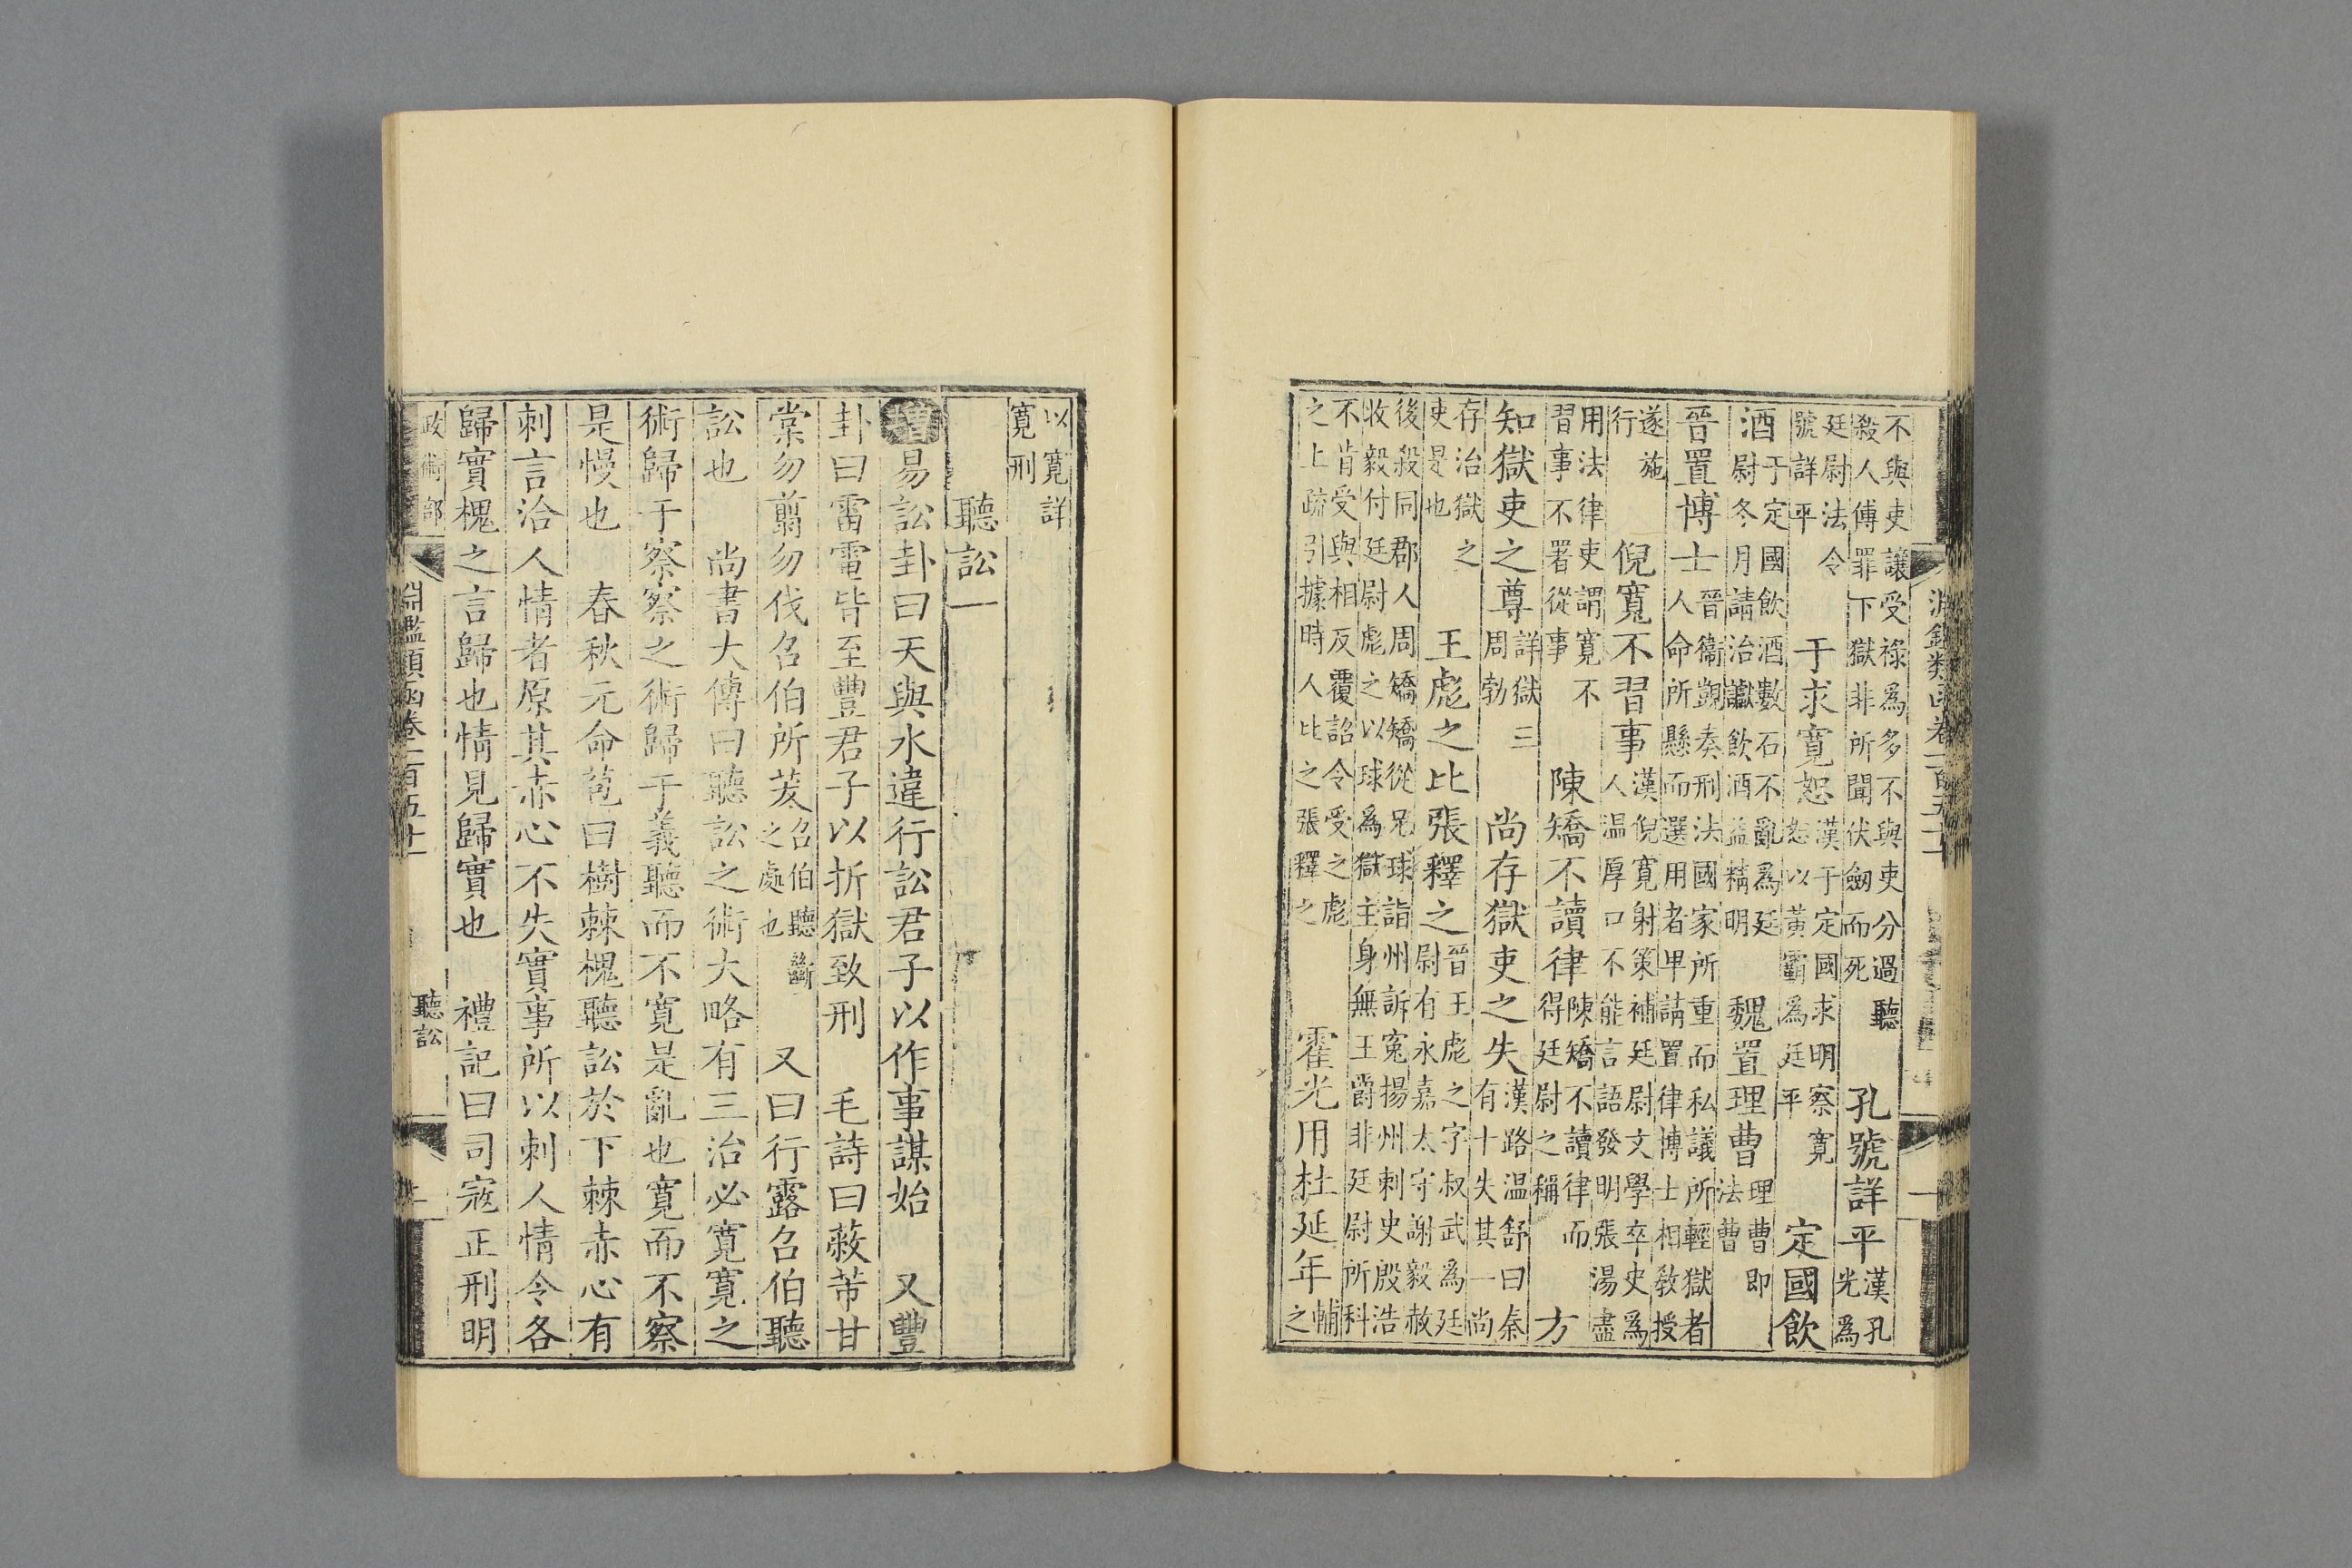 不與吏讓受祿爲多不與吏分過聽
殺人傅罪下獄非所聞伏劒而死
孔號詳平
漢孔光爲
廷尉法令
號詳平
于求寬恕
漢于定國求明察寬
恕以黃霸爲廷平
定國飲
酒
于定國飲酒數石不亂爲廷
尉冬月請治讞飲酒益精明
魏置理曹
理曹即
法曹
晉置博士
晉衞覬奏刑法國家所重而私議所輕獄者
人命所懸而選用者卑請置律博士相敎授
遂施
行
倪寬不習事
漢倪寬射策補廷尉文學卒史爲
人温厚口不能言語發明張湯盡
用法律吏謂寬不
習事不署從事
陳矯不讀律
陳矯不讀律而
得廷尉之稱
方
知獄吏之尊
詳獄三
周勃
尚存獄吏之失
漢路温舒曰秦
有十失其一尚
存治獄之
吏是也
王彪之比張釋之
晉王彪之字叔武爲廷
尉有永嘉太守謝毅赦
後殺同郡人周矯矯從兄球詣州訴寃揚州刺史殷浩
收毅付廷尉彪之以球爲獄主身無王爵非廷尉所科
不肯受與相反覆詔令受之彪
之上疏引據時人比之張釋之
霍光用杜延年
輔
之
以寬詳
寬刑
聽訟一
增易訟卦曰天與水違行訟君子以作事謀始　又豐
卦曰雷電皆至豐君子以折獄致刑　毛詩曰蔽芾甘
棠勿翦勿伐召伯所茇
召伯聽斷
之處也
又曰行露召伯聽
訟也　尚書大傳曰聽訟之術大略有三治必寬寬之
術歸于察察之術歸于義聽而不寬是亂也寬而不察
是慢也　春秋元命苞曰樹棘槐聽訟於下棘赤心有
刺言治人情者原其赤心不失實事所以刺人情令各
歸實槐之言歸也情見歸實也　禮記曰司寇正刑明
政術部
淵鑑類函卷一百五十一
聽訟